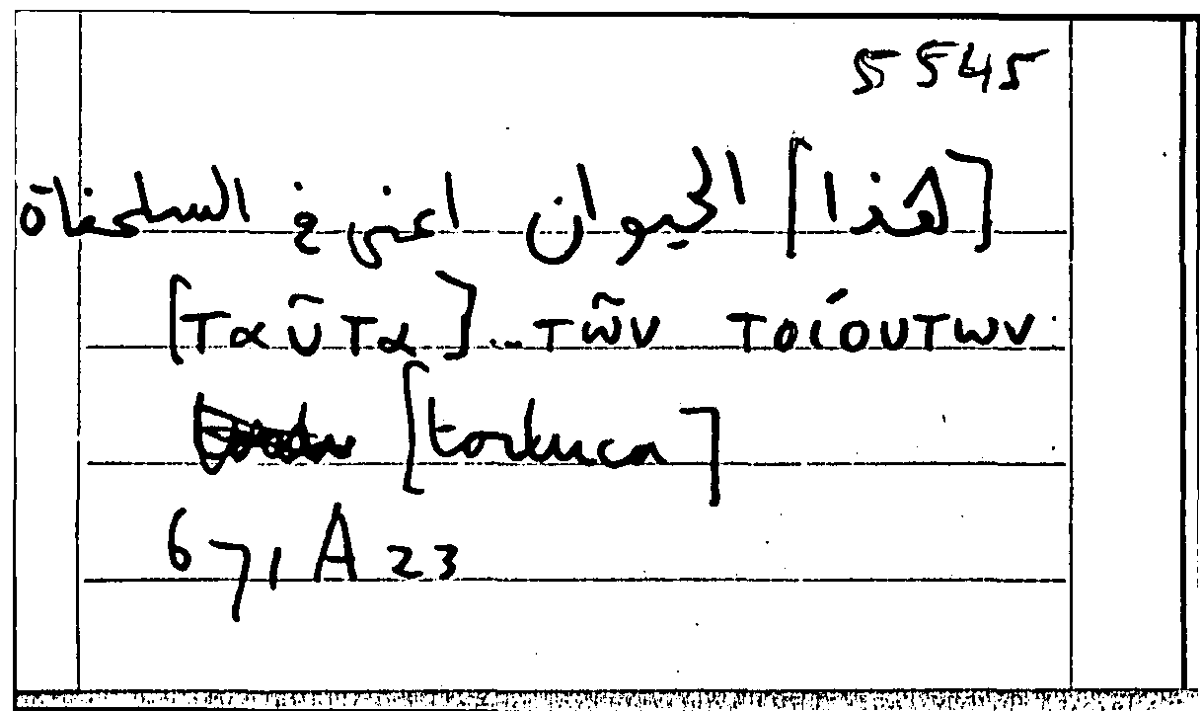 5545
[هذا] الحيوان اعنى فى السلحفاة
[ταῦτα]... τῶν τοιούτων
[tortuca]
671A23